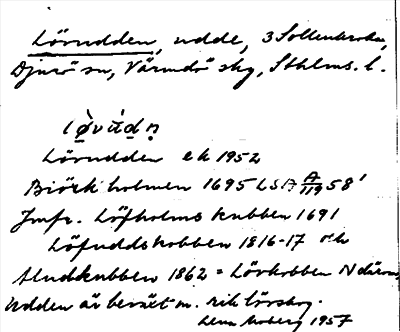 Lövudden, udde, 3 Sollenkroka,
Djurö sn, Värmdö skg, Sthlms. l.
Lövudden ek 1952
Björkholmen 1695 LSA A/119 58'
Jmfr. Löfholms kubben 1691
Löfuddskobben 1816-17 och
Aludkubben 1862 = Lövkobben N därom
Udden är beväxt m. rik lövskog.
1957